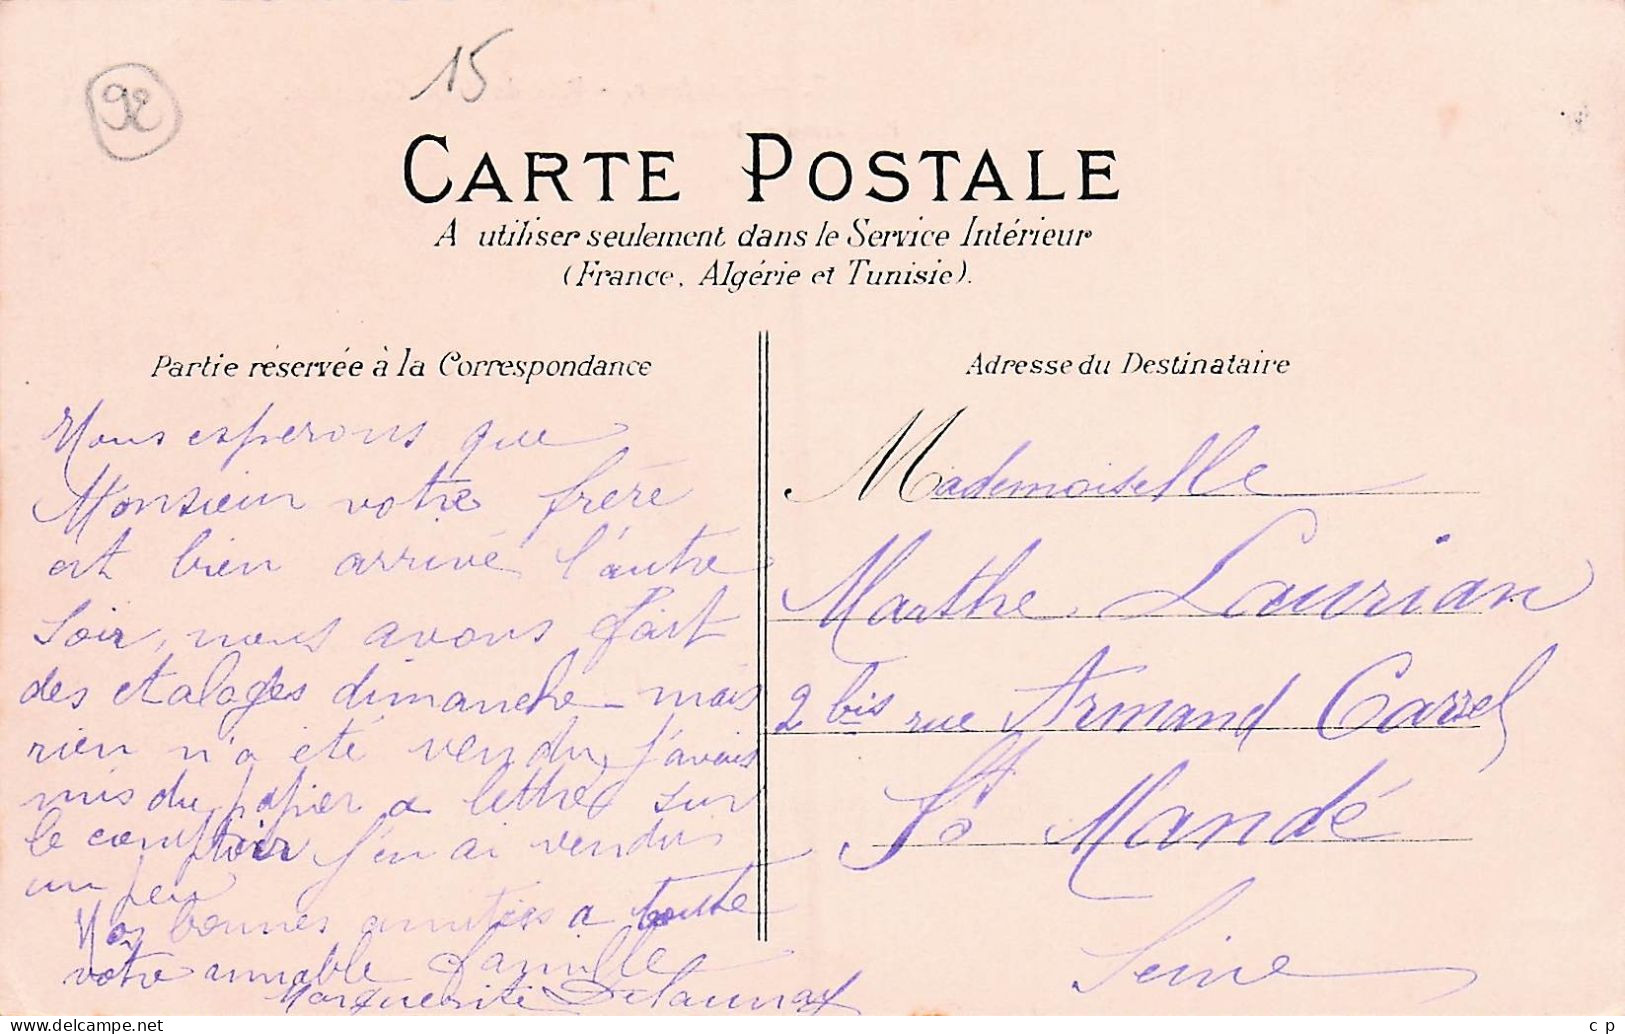 92
15
CARTE POSTALE
A utiliser seulement dans le Service Intérieur
(France, Algérie et Tunisie).
Partie réservée à la Correspondance
Nous esperons que
Monsieur votre frère
est bien arrivé l'autre
soir, nous avons fait
des etalages dimanche - mais
rien n'a été vendu, j'avais
mis du papier a lettre sur
le comptoir j'en ai vendu
un peu
Nos bonnes amitiés a toute
votre aimable famille
Marguerite Delaunay
Adresse du Destinataire
Mademoiselle
Marthe Laurian
2 bis rue Armand Carrel
St Mandé
Seine
delcampe.net
c p